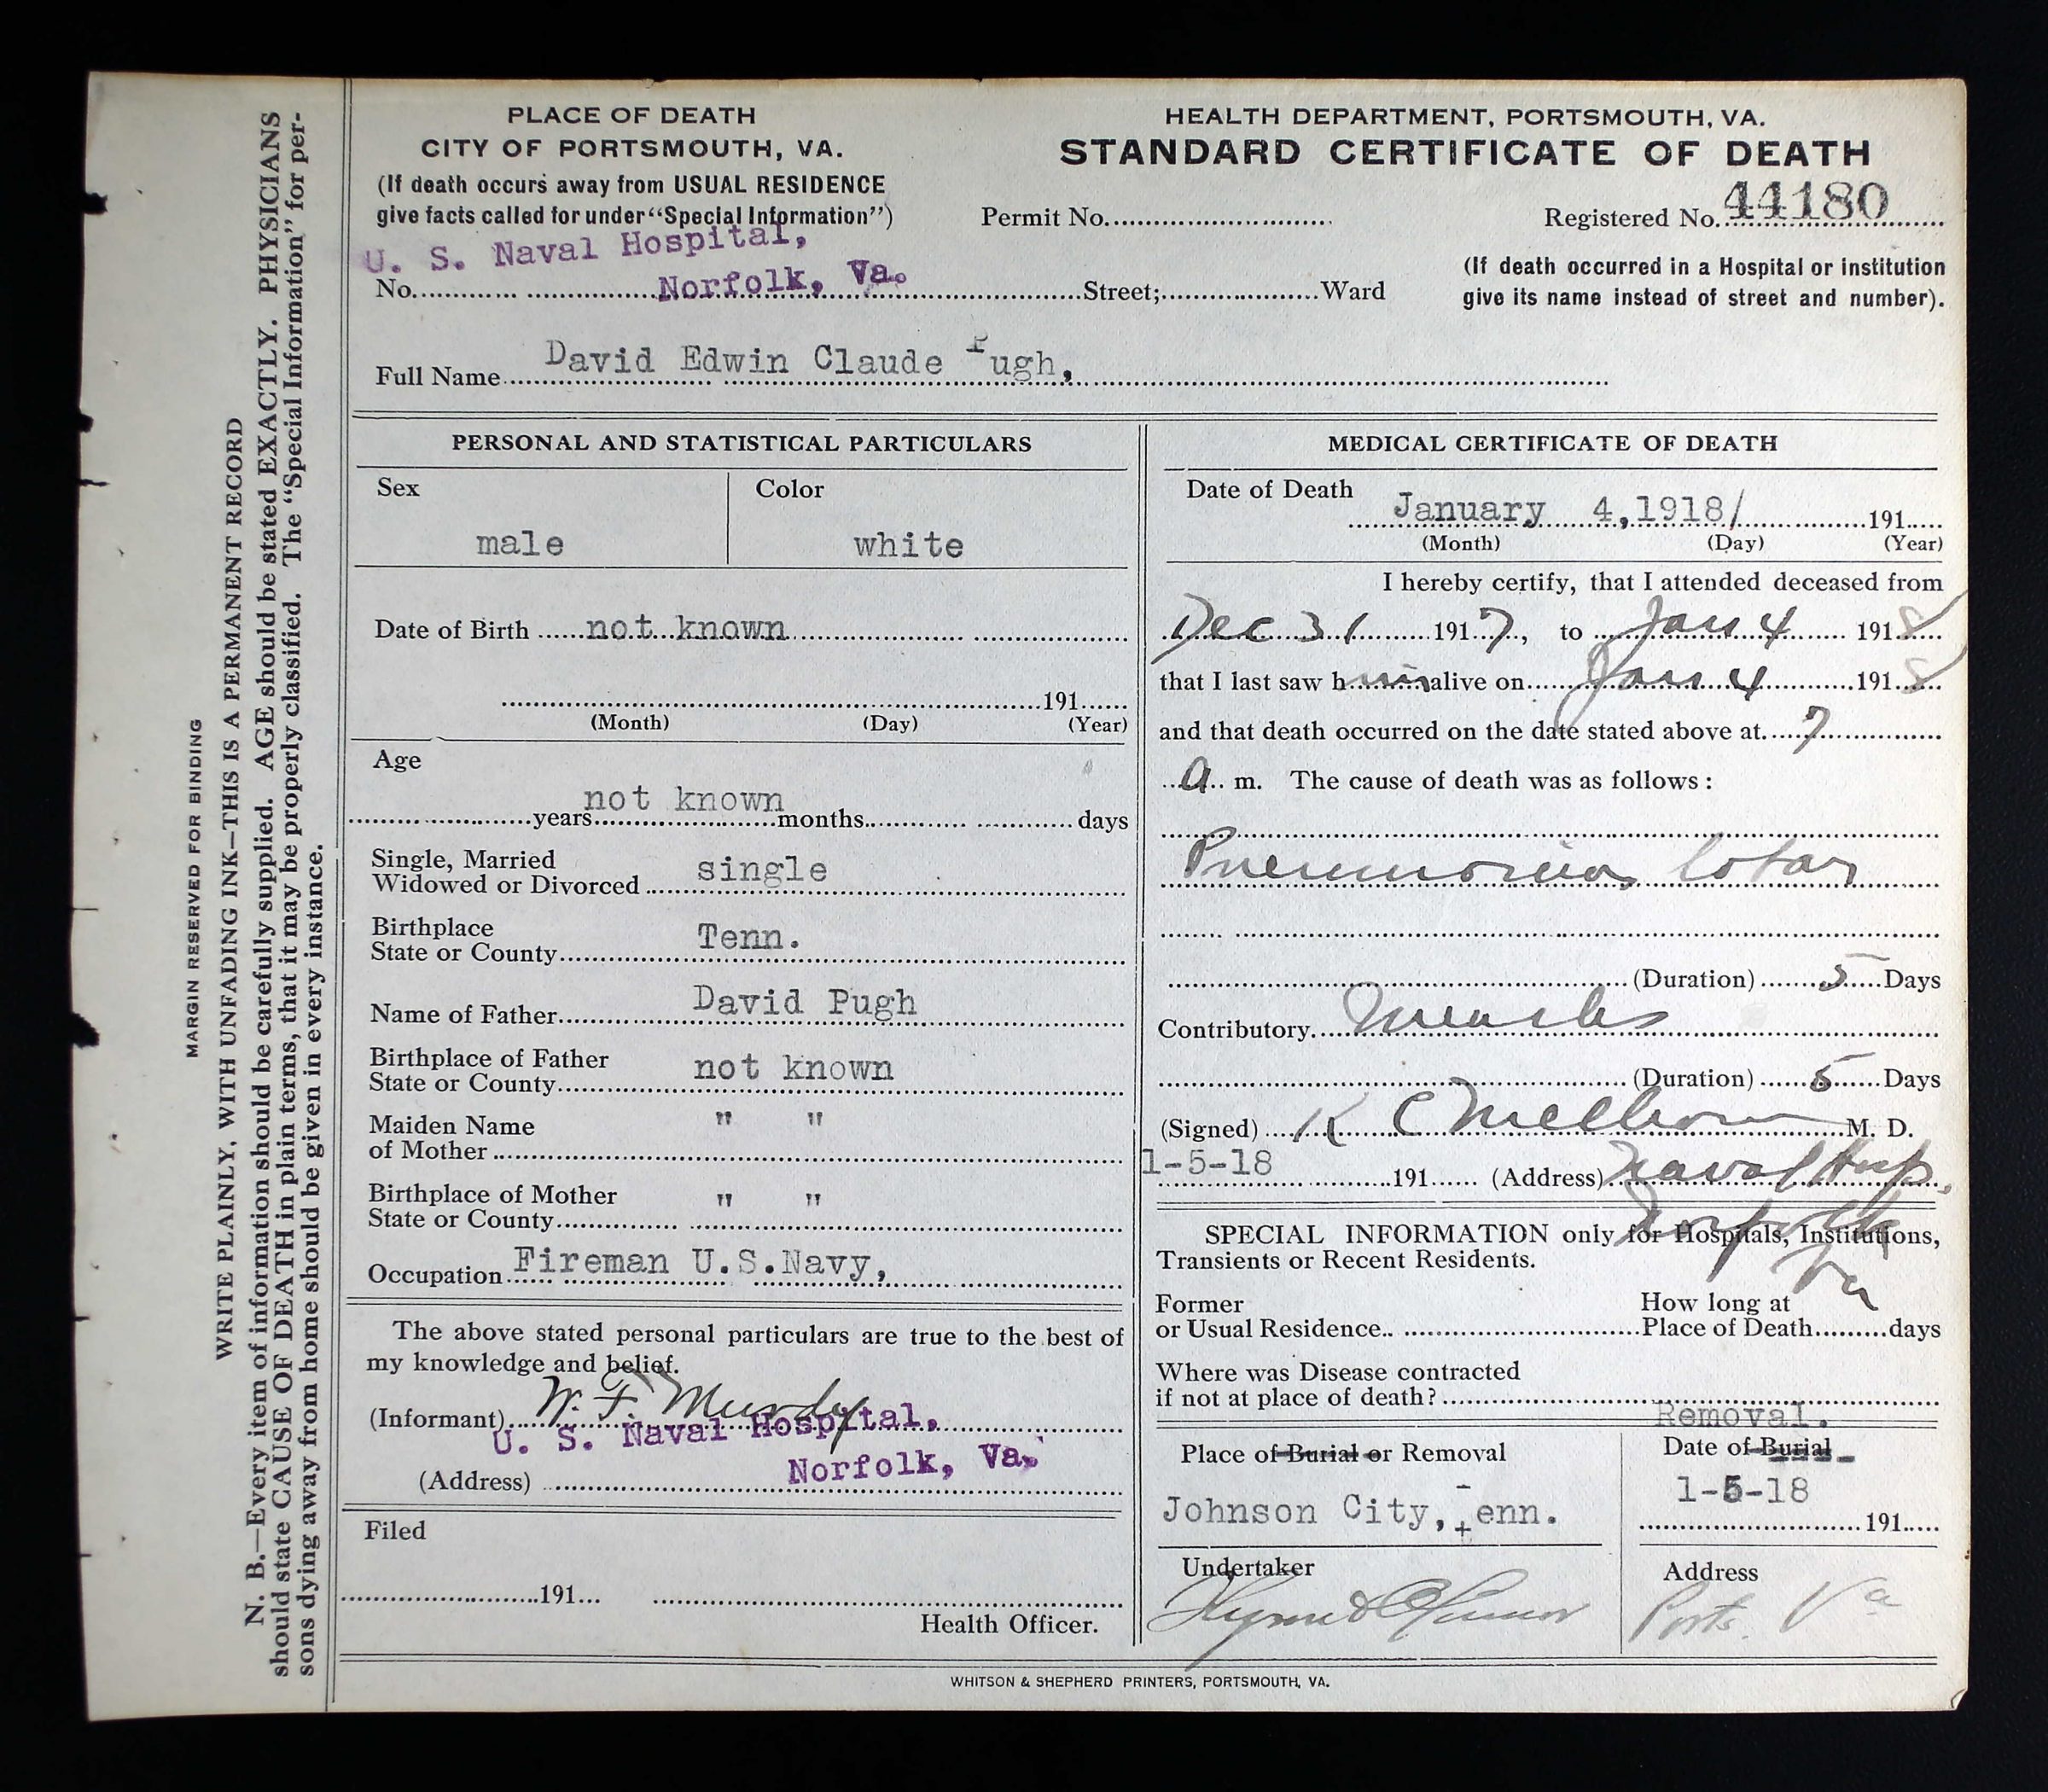 MARGIN RESERVED FOR BINDING
WRITE PLAINLY, WITH UNFADING INK—THIS IS A PERMANENT RECORD
N. B.—Every item of information should be carefully supplied. AGE should be stated EXACTLY. PHYSICIANS
should state CAUSE OF DEATH in plain terms, that it may be properly classified. The "Special Information" for per-
sons dying away from home should be given in every instance.
PLACE OF DEATH
CITY OF PORTSMOUTH, VA.
(If death occurs away from USUAL RESIDENCE
give facts called for under "Special Information")
HEALTH DEPARTMENT, PORTSMOUTH, VA.
STANDARD CERTIFICATE OF DEATH
Permit No. Registered No. 44180
U. S. Naval Hospital,
No. Norfolk, Va. Street; Ward
(If death occurred in a Hospital or institution
give its name instead of street and number).
Full Name David Edwin Claude Pugh,
PERSONAL AND STATISTICAL PARTICULARS
Sex Color
male white
Date of Birth not known
191
(Month) (Day) (Year)
Age
not known
years months days
Single, Married
Widowed or Divorced single
Birthplace
State or County Tenn.
Name of Father David Pugh
Birthplace of Father
State or County not known
Maiden Name
of Mother " "
Birthplace of Mother
State or County " "
Occupation Fireman U.S.Navy,
The above stated personal particulars are true to the best of
my knowledge and belief.
(Informant) W. F. Murdy
U. S. Naval Hospital,
(Address) Norfolk, Va.
Filed
191
Health Officer.
MEDICAL CERTIFICATE OF DEATH
Date of Death January 4,1918/ 191
(Month) (Day) (Year)
I hereby certify, that I attended deceased from
Dec 31 1917, to Jan 4 1918
that I last saw him alive on Jan 4 1918
and that death occurred on the date stated above at 7
a m. The cause of death was as follows:
Pneumonia, lobar
(Duration) 5 Days
Contributory Measles
(Duration) 5 Days
(Signed) K C M. D.
1-5-18 191 (Address) Naval Hosp,
Norfolk
Va
SPECIAL INFORMATION only for Hospitals, Institutions,
Transients or Recent Residents.
Former
or Usual Residence
How long at
Place of Death days
Where was Disease contracted
if not at place of death?
Removal.
Place of Burial or Removal
Date of Burial
Johnson City, Tenn.
1-5-18
191
Undertaker
Address
Ports. Va
WHITSON & SHEPHERD PRINTERS, PORTSMOUTH, VA.